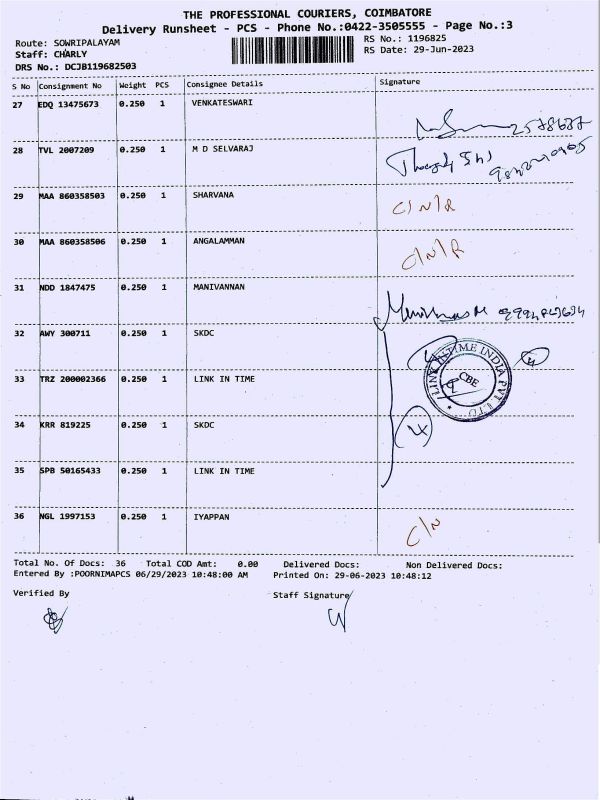 THE PROFESSIONAL COURIERS, COIMBATORE
Delivery Runsheet - PCS - Phone No.:0422-3505555 - Page No.:3
Route: SOWRIPALAYAM RS No.: 1196825
Staff: CHARLY RS Date: 29-Jun-2023
DRS No.: DCJB119682503
S No Consignment No Weight PCS Consignee Details Signature
27 EDQ 13475673 0.250 1 VENKATESWARI
28 TVL 2007209 0.250 1 M D SELVARAJ
29 MAA 860358503 0.250 1 SHARVANA C/N/R
30 MAA 860358506 0.250 1 ANGALAMMAN C/N/R
31 NDD 1847475 0.250 1 MANIVANNAN
32 AWY 300711 0.250 1 SKDC
LINK INTIME INDIA PVT. LTD.
CBE
33 TRZ 200002366 0.250 1 LINK IN TIME
34 KRR 819225 0.250 1 SKDC 4
35 SPB 50165433 0.250 1 LINK IN TIME
36 NGL 1997153 0.250 1 IYAPPAN C/N
Total No. Of Docs: 36 Total COD Amt: 0.00 Delivered Docs: Non Delivered Docs:
Entered By :POORNIMAPCS 06/29/2023 10:48:00 AM Printed On: 29-06-2023 10:48:12
Verified By Staff Signature